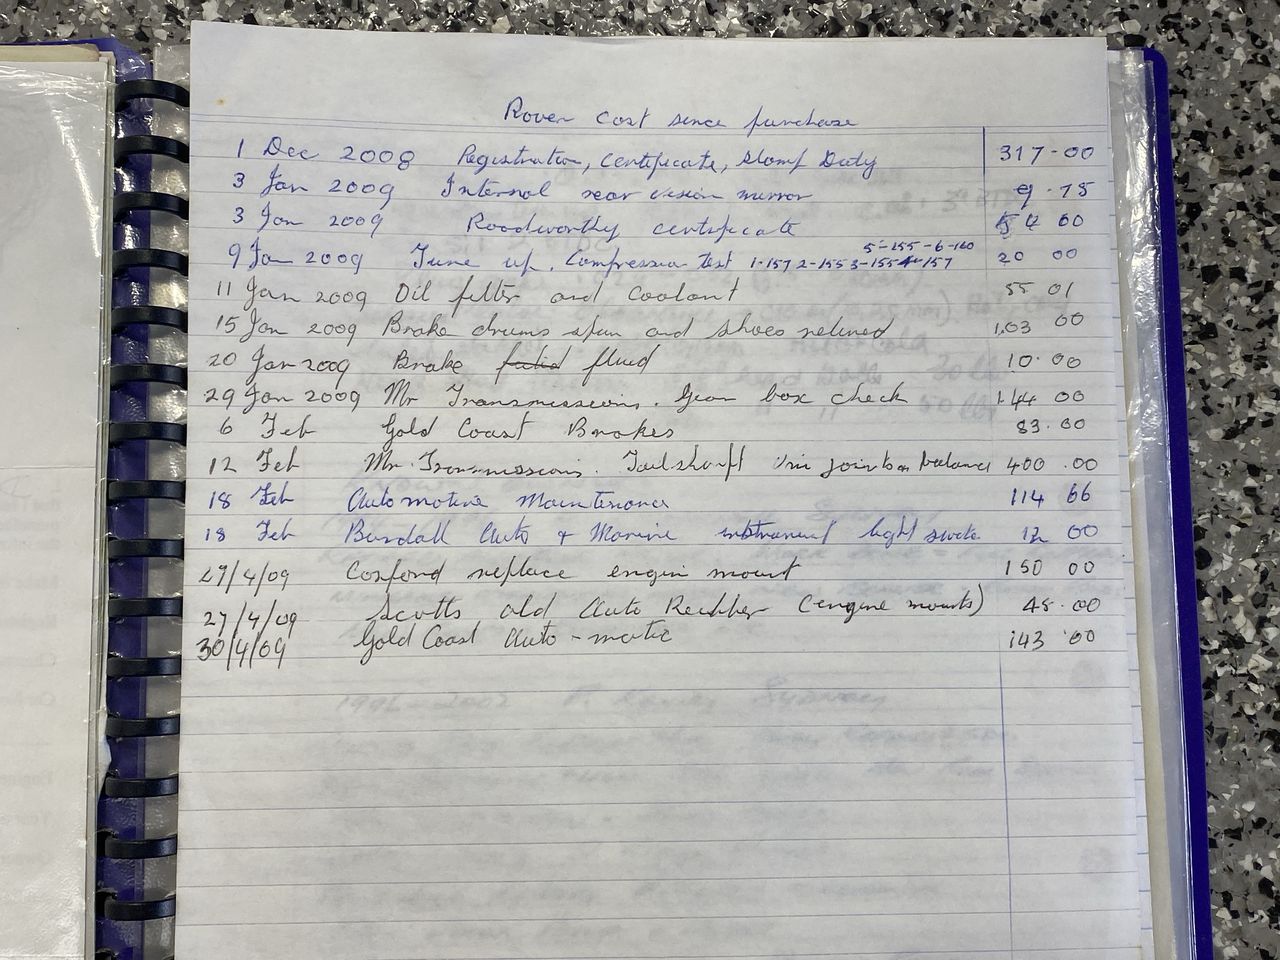 Rover cost since purchase
1 Dec 2008 Registration, certificate, stamp Duty 317-00
3 Jan 2009 Internal rear vision mirror 9.75
3 Jan 2009 Roadworthy certificate 00
5-155-6-160
9 Jan 2009 Tune up, Compression test 1-157 2-155 3-155 4-157 20 00
11 Jan 2009 Oil filter and coolant 55 01
15 Jan 2009 Brake drums span and shoes relined 103 00
20 Jan 2009 Brake fluid 10.00
29 Jan 2009 Mr Transmissions. Gear box check 144 00
6 Feb Gold Coast Brakes 83.00
12 Feb Mr. Transmissions. Tailshaft joints balance 400.00
18 Feb Automotive Maintenance 114 66
18 Feb Bundall Auto & Marine instrument light 12 00
27/4/09 Cosford replace engin mount 150 00
27/4/09 Scotts old Auto Rubber (engine mounts) 48.00
30/4/09 Gold Coast Auto-matic 143.00